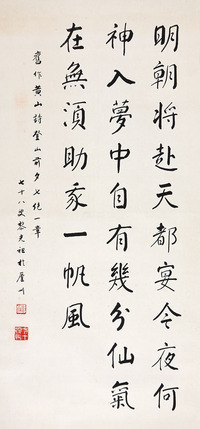 明朝将赴天都宴今夜何
神入夢中自有幾分仙氣
在無湏助我一帆風
舊作黄山詩登山前夕七絕一章
七十八叟黎光祖於廬州